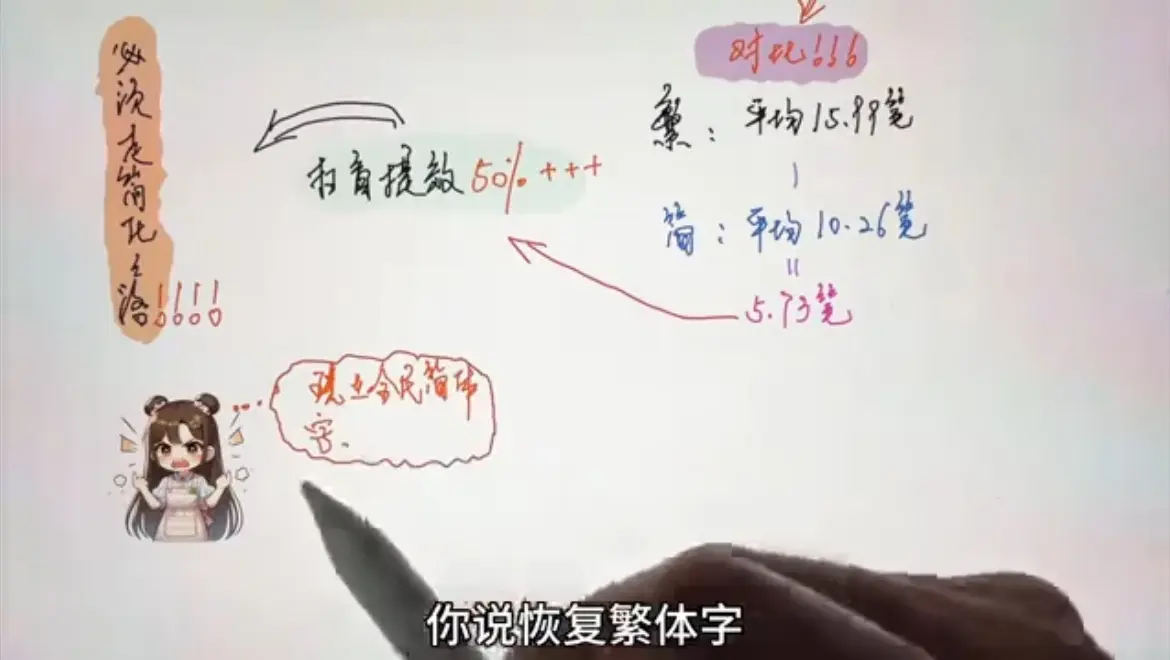 必须走简化之路!!!!
对比!!!
繁：平均15.99笔
简：平均10.26笔
=
5.73笔
扫盲提效50%+++
现在全民简体
字.
你说恢复繁体字